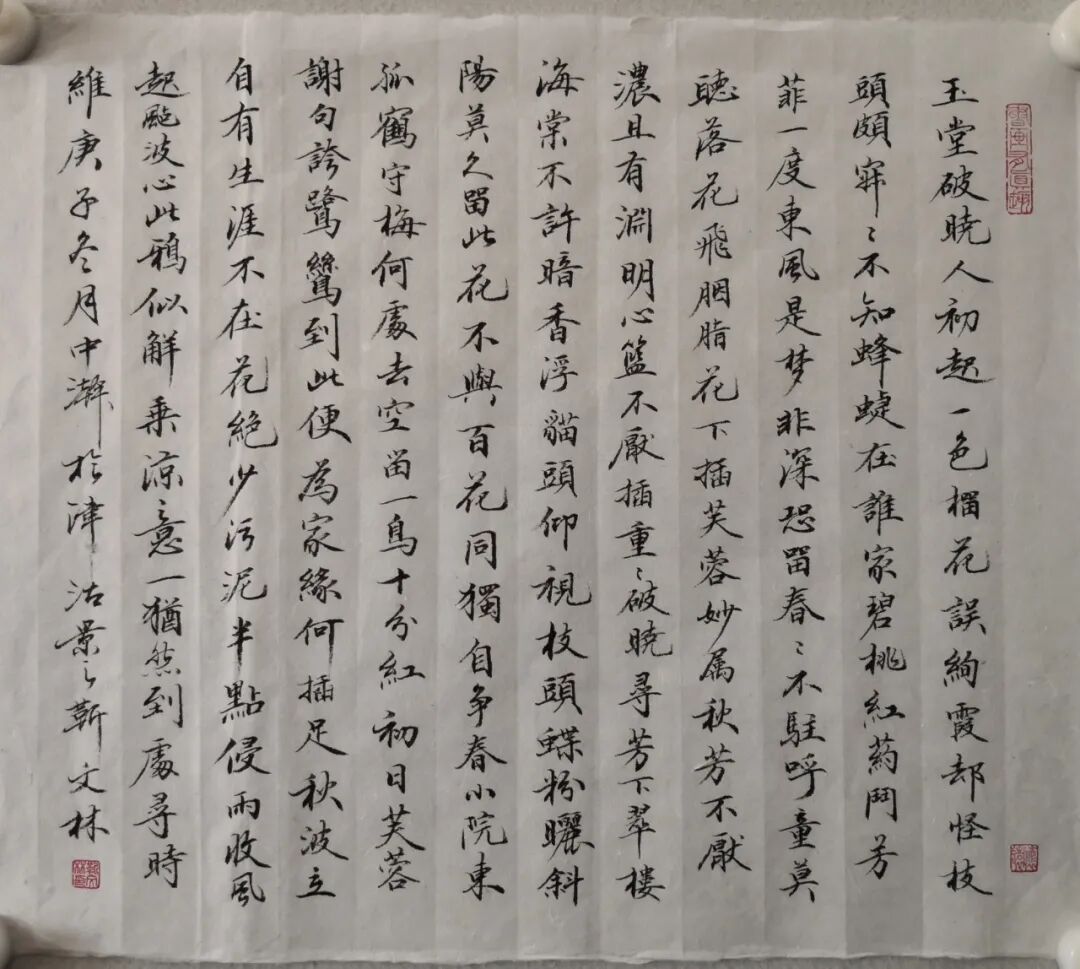 玉堂破曉人初起一色櫊花誤絢霞却怪枝
頭頗寂〻不知蜂蜨在誰家碧桃紅葯鬥芳
菲一度東風是梦非深恐留春〻不駐呼童莫
聽落花飛胭脂花下插芙蓉妙属秋芳不厭
濃且有淵明心籃不厭插重〻破曉尋芳下翠樓
海棠不許暗香浮貓頭仰視枝頭蝶粉曬斜
陽莫久留此花不與百花同獨自争春小院東
孤鶴守梅何處去空留一鳥十分紅初日芙蓉
謝句誇鷺鷥到此便為家緣何插足秋波立
自有生涯不在花絶少污泥半點侵雨收風
起颭波心此鴉似解乗涼意一猶然到處尋時
維庚子冬月中澣於津沽景之靳文林